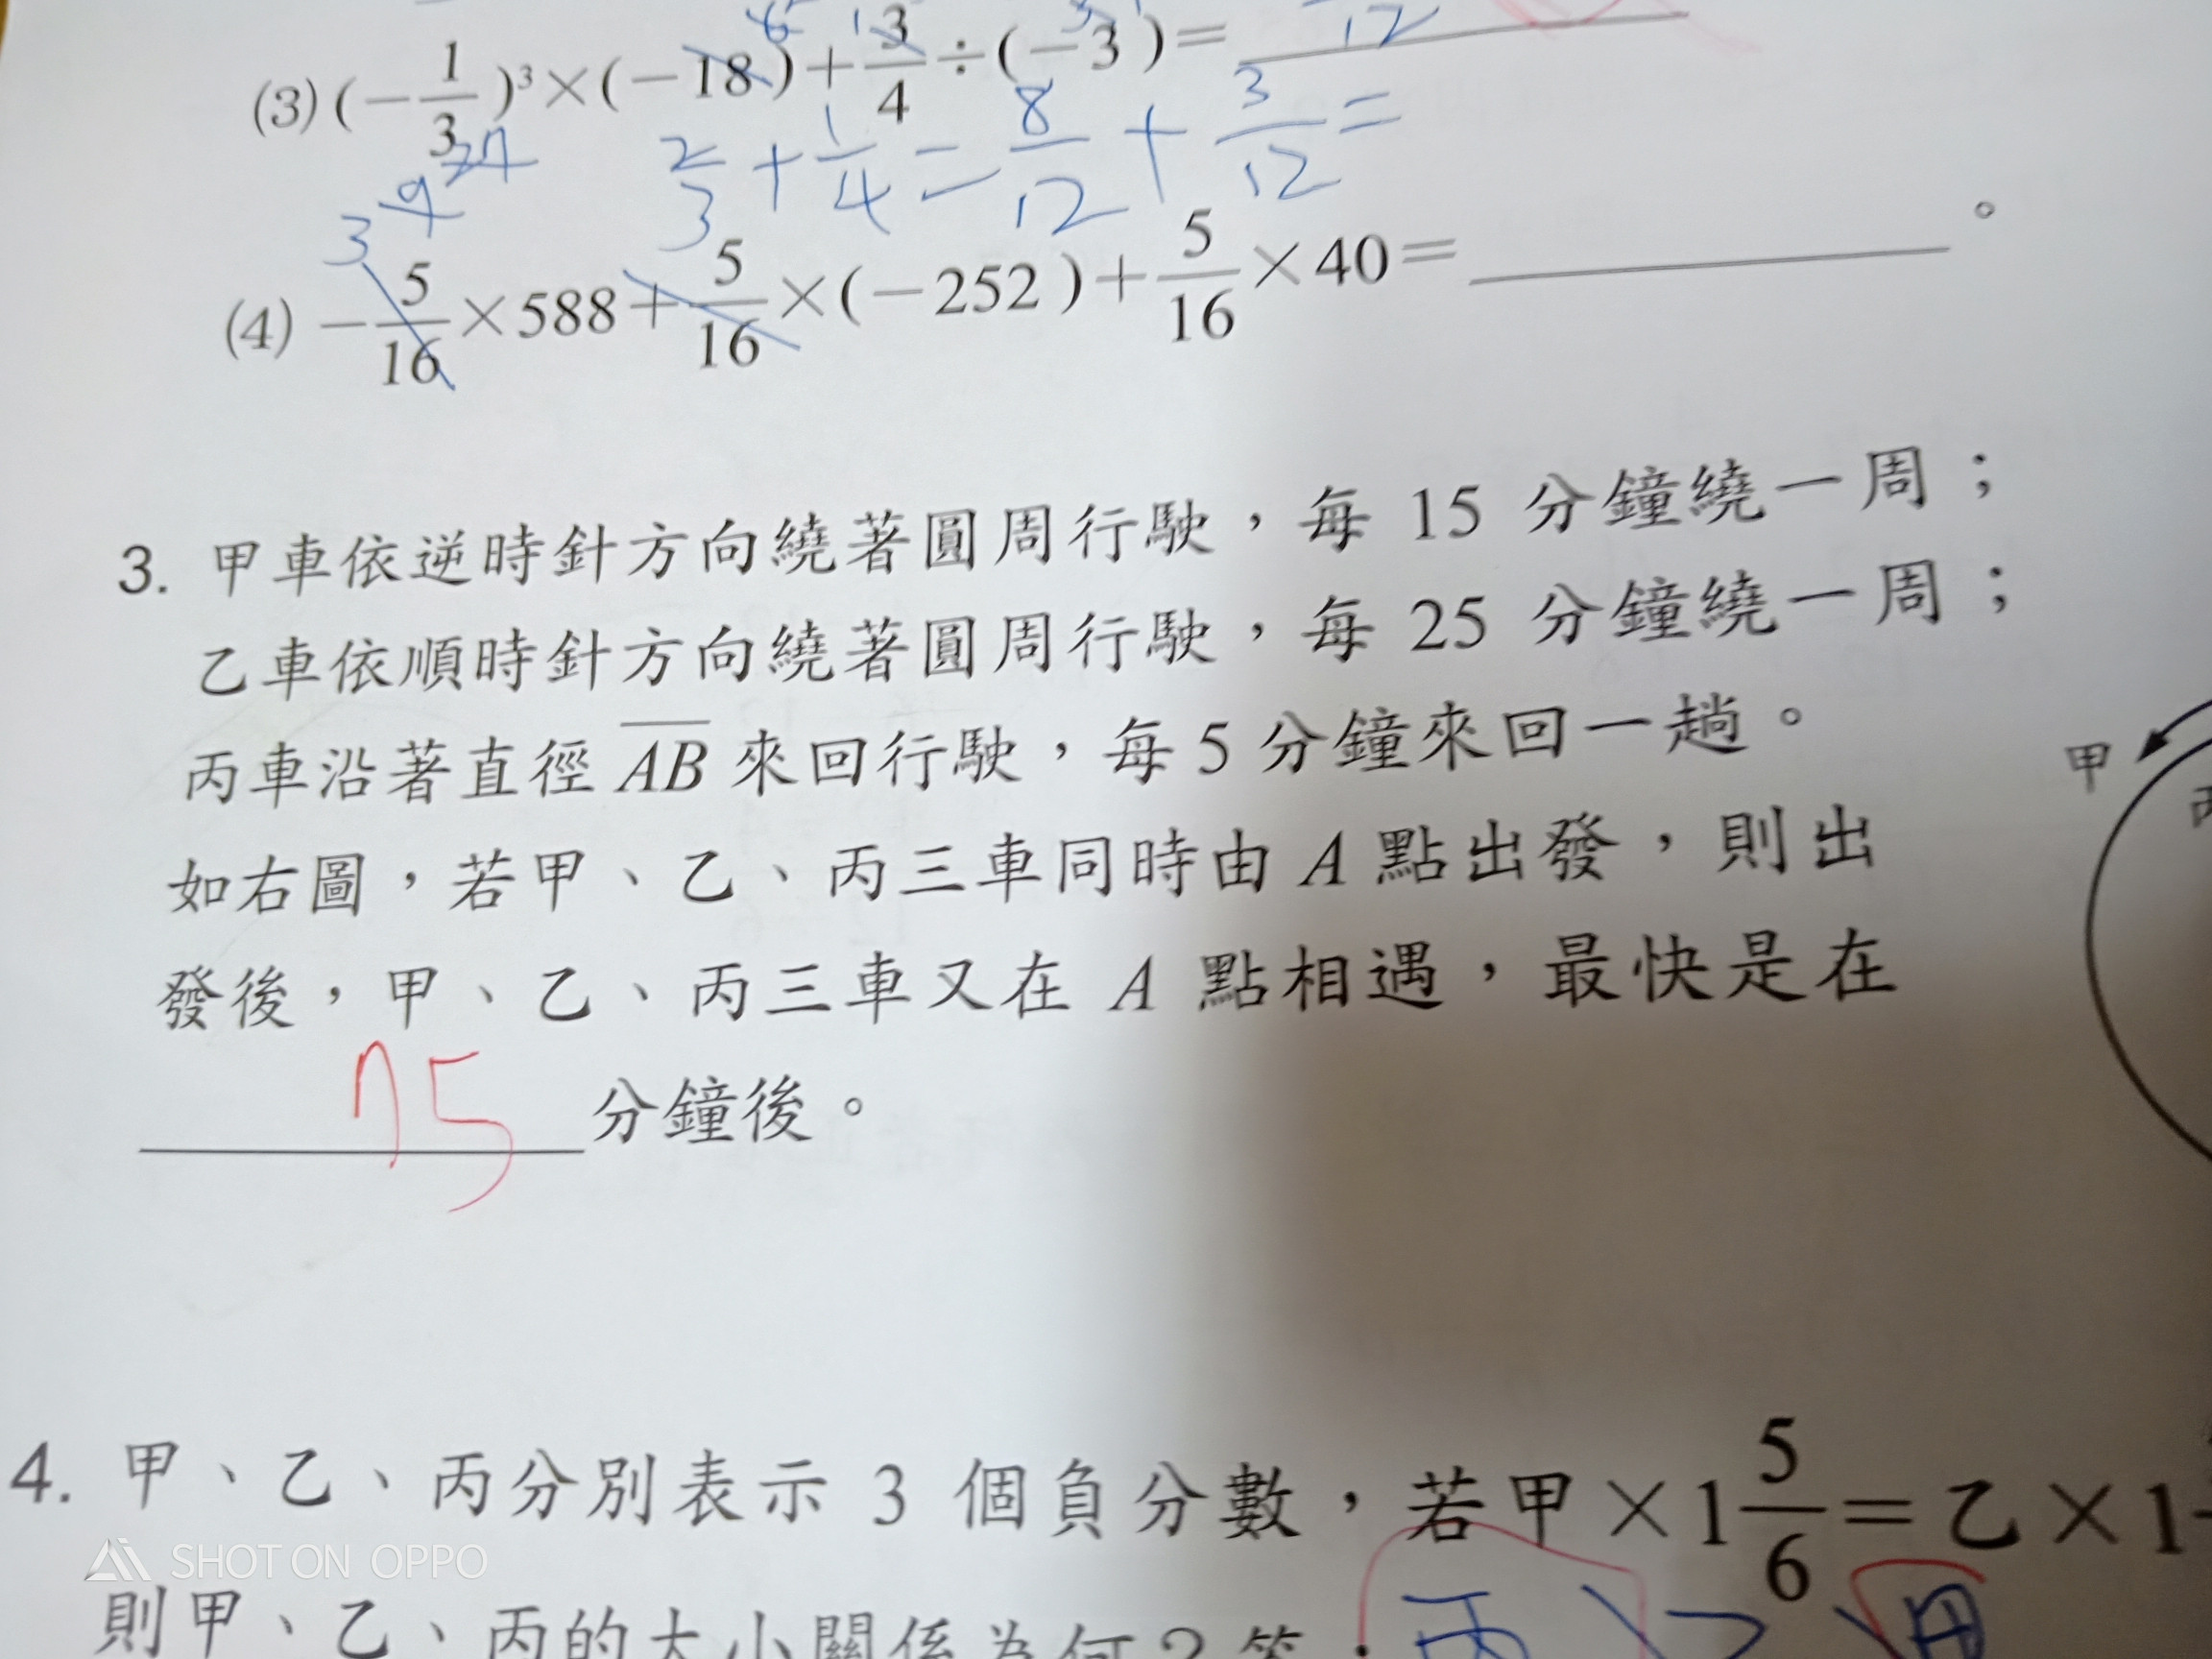 (3) (-1/3)³×(-18)+3/4÷(-3)=
6 1 12
27 9 3
2/3+1/4=8/12+3/12=
(4) -5/16×588+5/16×(-252)+5/16×40= 。
3. 甲車依逆時針方向繞著圓周行駛,每 15 分鐘繞一周;
乙車依順時針方向繞著圓周行駛,每 25 分鐘繞一周;
丙車沿著直徑 AB 來回行駛,每 5 分鐘來回一趟。
甲
如右圖,若甲、乙、丙三車同時由 A 點出發,則出
發後,甲、乙、丙三車又在 A 點相遇,最快是在
75 分鐘後。
4. 甲、乙、丙分別表示 3 個負分數,若甲×1 5/6=乙×1
SHOT ON OPPO
則甲、乙、丙的大小關係為何?答:丙>乙>甲